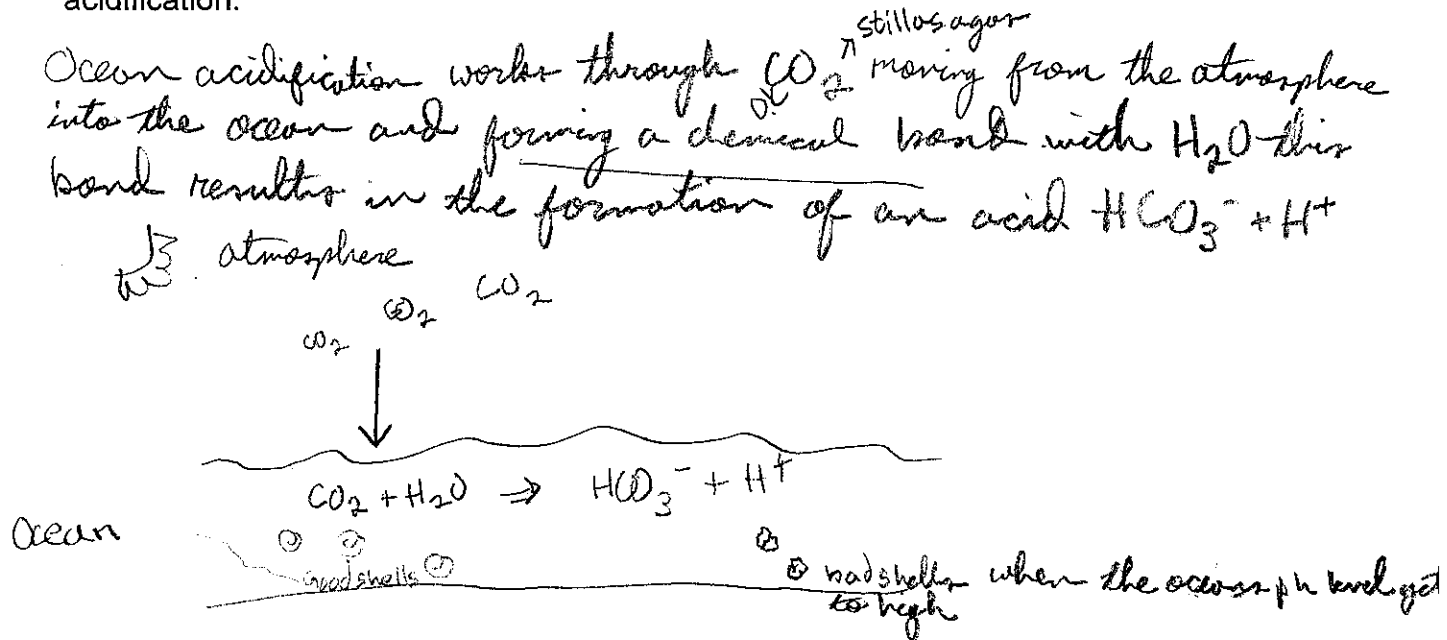 acidification.
still as a gas
Ocean acidification works through CO₂ moving from the atmosphere
into the ocean and forming a chemical bond with H₂O this
bond results in the formation of an acid HCO₃⁻ + H⁺
atmosphere
CO₂
CO₂
CO₂
CO₂ + H₂O ⇒ HCO₃⁻ + H⁺
Ocean
Good shells
bad shells when the oceans ph level get
to high